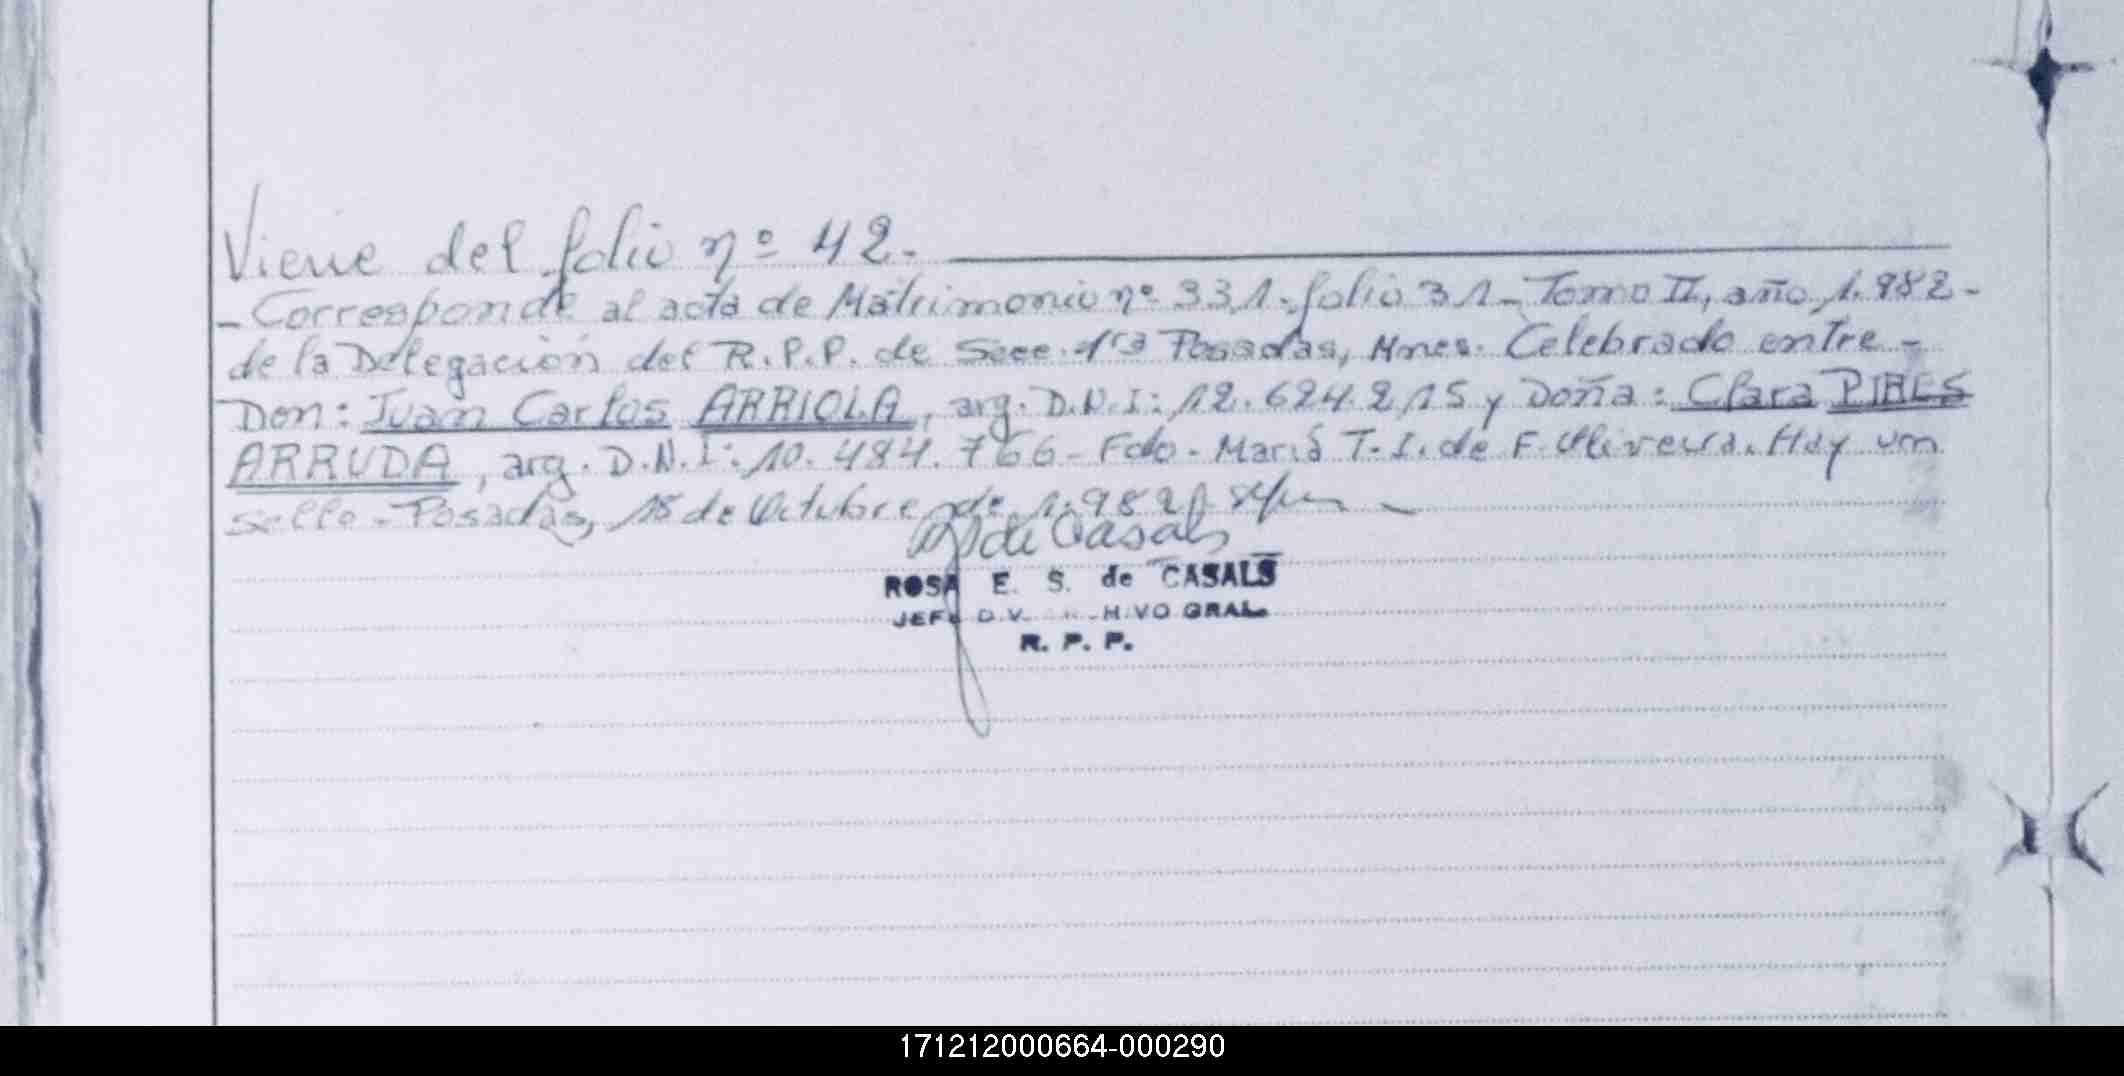 Viene del folio nº 42.
- Corresponde al acta de Matrimonio nº 331. folio 31 - Tomo II, año 1.982 -
de la Delegación del R.P.P. de Secc. 1ra Posadas, Mnes. Celebrado entre -
Don: Juan Carlos ARRIOLA, arg. D.N.I: 12.624.215 y Doña: Clara PIRES
ARRUDA, arg. D.N.I: 10.484.766 - Fdo. María T. I. de F. Oliveira. Hay un
sello - Posadas, 18 de Octubre de 1.982
de Casals
ROSA E. S. de CASALS
JEFE GRAL.
R. P. P.
171212000664-000290